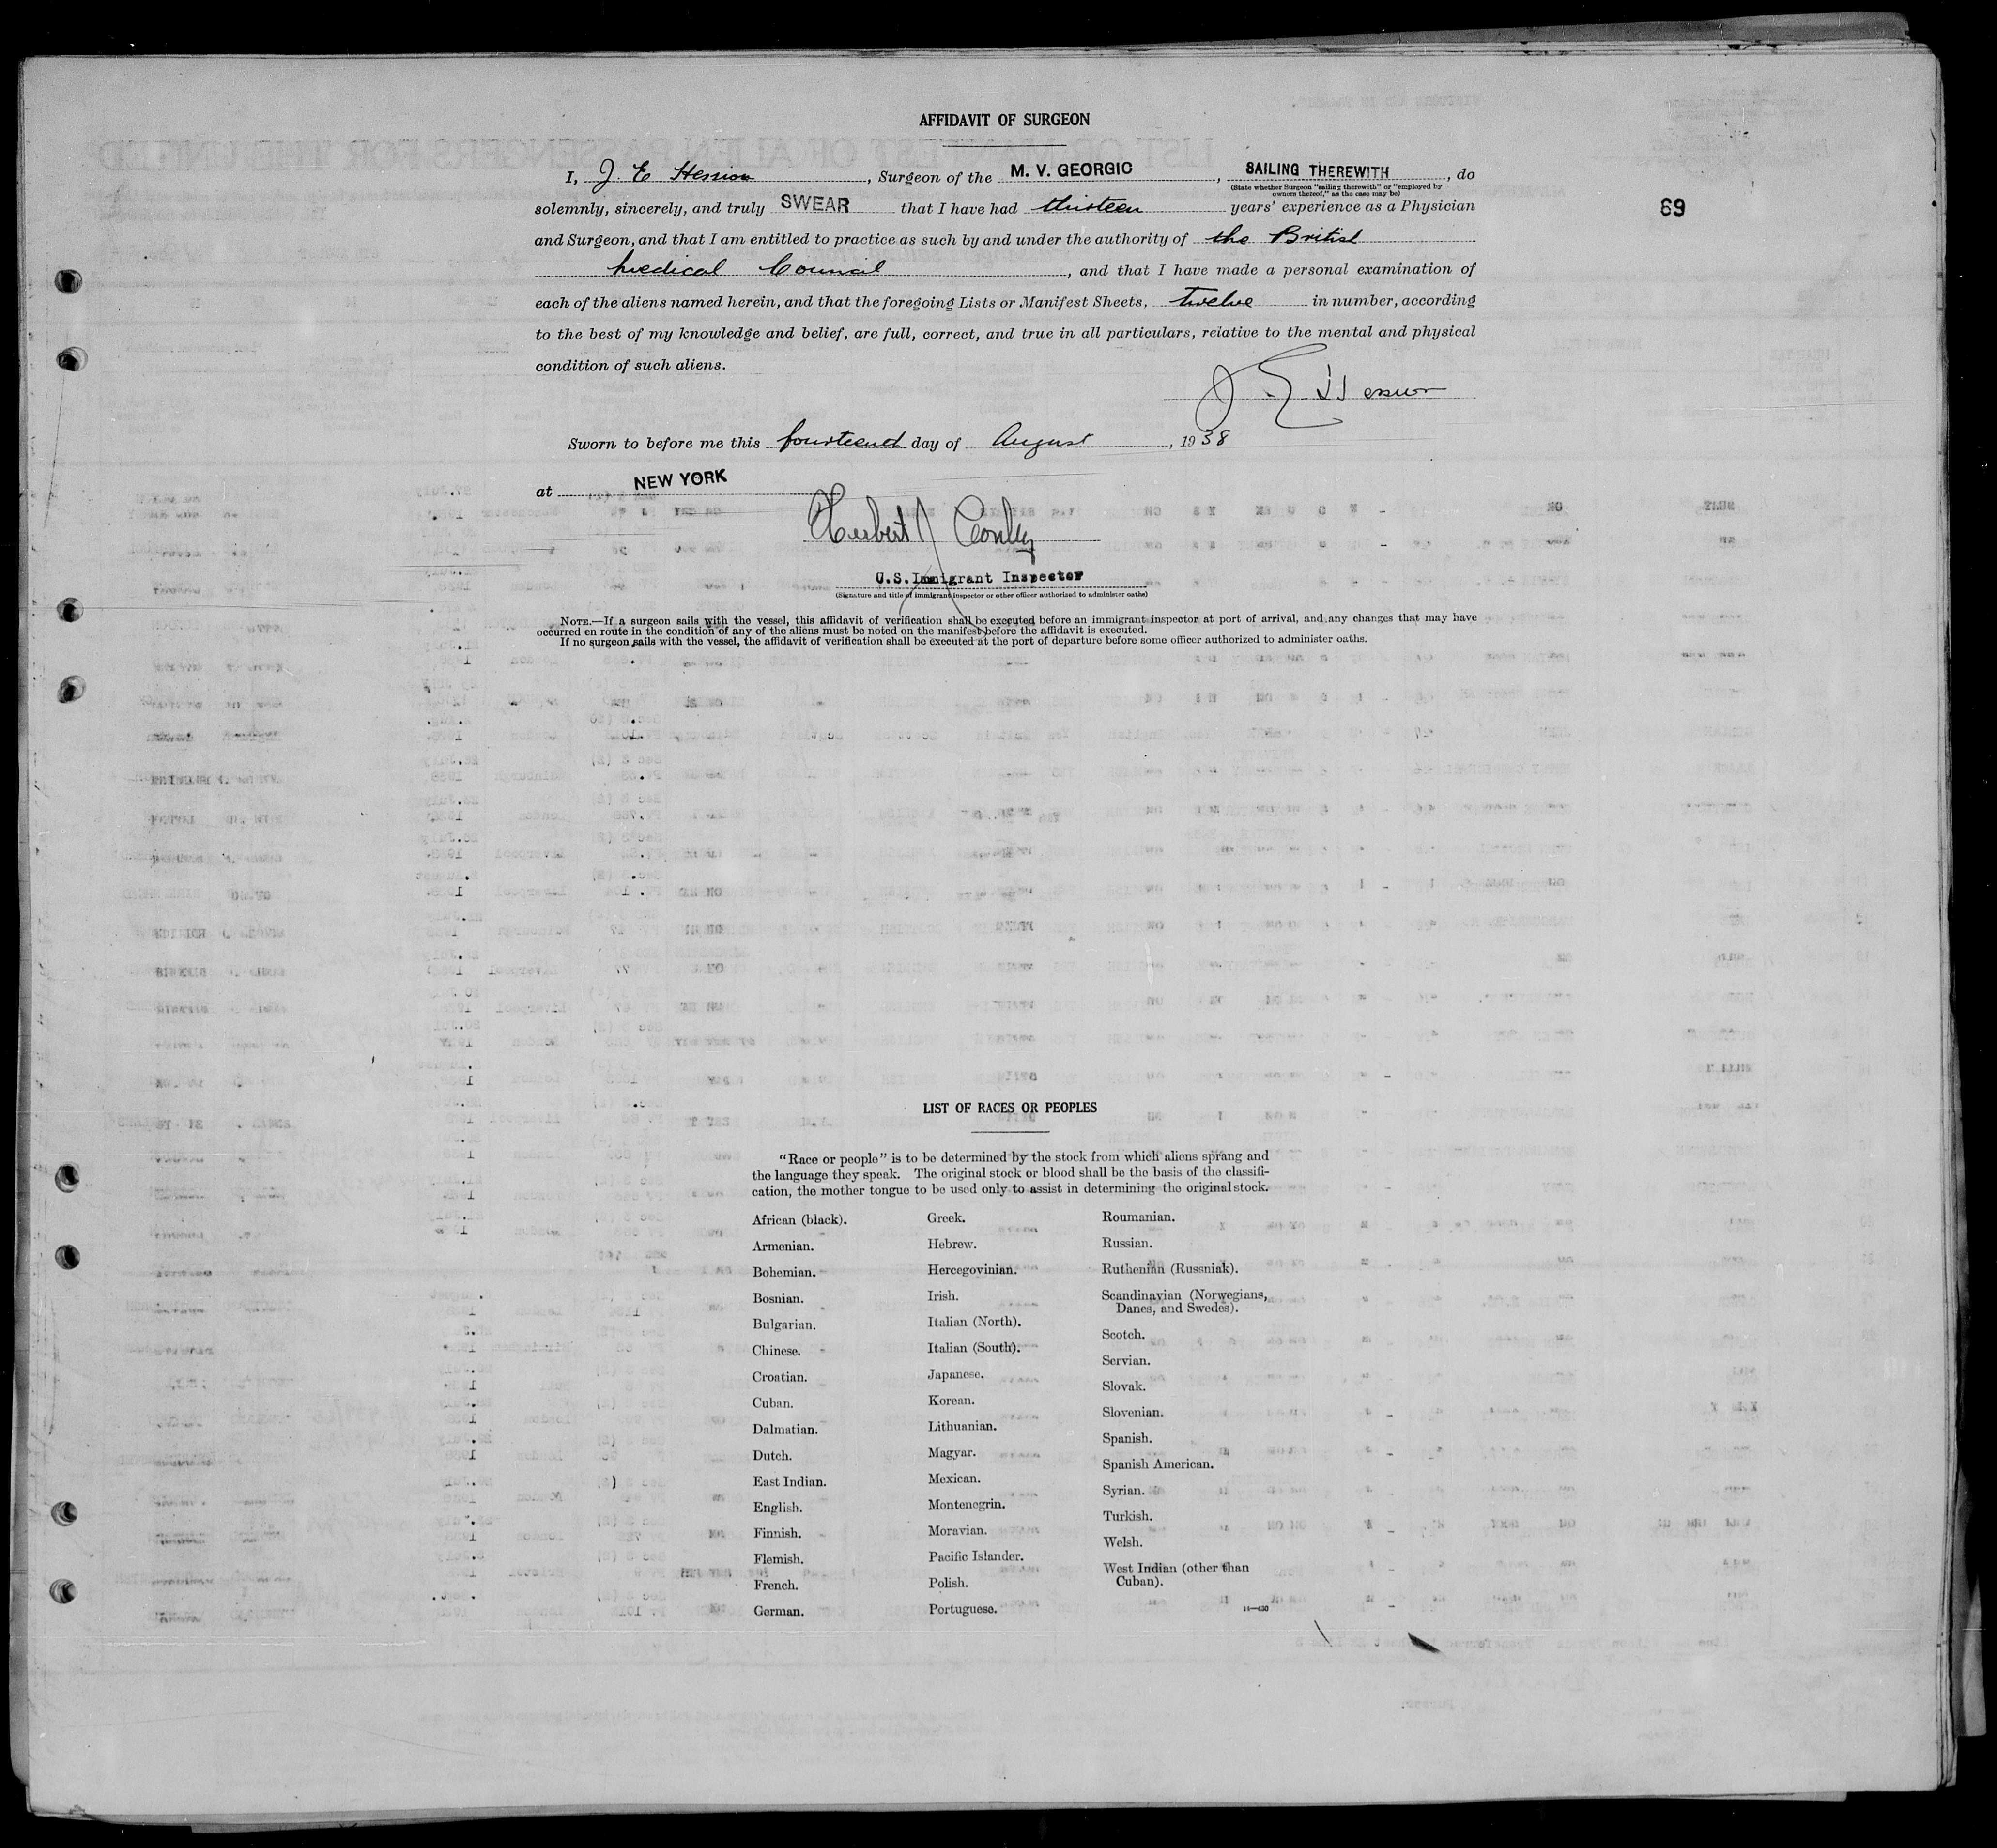 AFFIDAVIT OF SURGEON
I, J. E. Hession, Surgeon of the M. V. GEORGIC, SAILING THEREWITH, do
(State whether Surgeon "sailing therewith" or "employed by
owners thereof," as the case may be)
solemnly, sincerely, and truly SWEAR that I have had thirteen years' experience as a Physician
69
and Surgeon, and that I am entitled to practice as such by and under the authority of the British
Medical Council, and that I have made a personal examination of
each of the aliens named herein, and that the foregoing Lists or Manifest Sheets, twelve in number, according
to the best of my knowledge and belief, are full, correct, and true in all particulars, relative to the mental and physical
condition of such aliens.
J E Hession
Sworn to before me this fourteenth day of August, 1938
at NEW YORK
Herbert J Conley
U.S. Immigrant Inspector
(Signature and title of immigrant inspector or other officer authorized to administer oaths)
NOTE.—If a surgeon sails with the vessel, this affidavit of verification shall be executed before an immigrant inspector at port of arrival, and any changes that may have
occurred en route in the condition of any of the aliens must be noted on the manifest before the affidavit is executed.
If no surgeon sails with the vessel, the affidavit of verification shall be executed at the port of departure before some officer authorized to administer oaths.
LIST OF RACES OR PEOPLES
"Race or people" is to be determined by the stock from which aliens sprang and
the language they speak. The original stock or blood shall be the basis of the classifi-
cation, the mother tongue to be used only to assist in determining the original stock.
African (black).
Armenian.
Bohemian.
Bosnian.
Bulgarian.
Chinese.
Croatian.
Cuban.
Dalmatian.
Dutch.
East Indian.
English.
Finnish.
Flemish.
French.
German.
Greek.
Hebrew.
Hercegovinian.
Irish.
Italian (North).
Italian (South).
Japanese.
Korean.
Lithuanian.
Magyar.
Mexican.
Montenegrin.
Moravian.
Pacific Islander.
Polish.
Portuguese.
Roumanian.
Russian.
Ruthenian (Russniak).
Scandinavian (Norwegians,
Danes, and Swedes).
Scotch.
Servian.
Slovak.
Slovenian.
Spanish.
Spanish American.
Syrian.
Turkish.
Welsh.
West Indian (other than
Cuban).